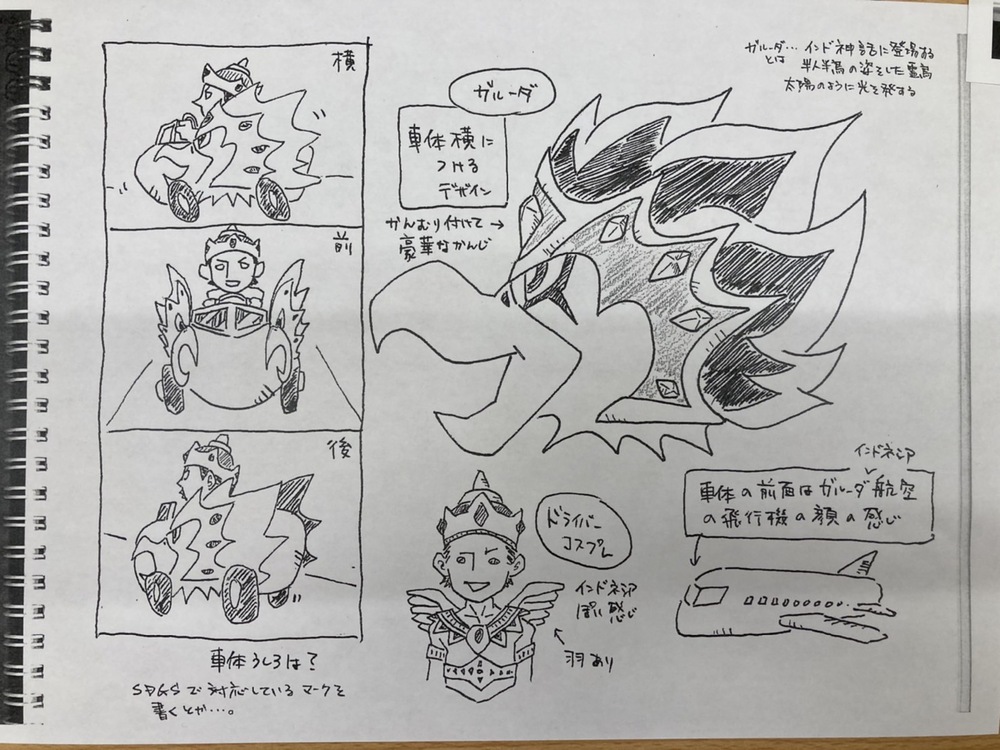 横
前
後
車体うしろは?
SDGSで対応しているマークを
書くとか…。
ガルーダ
車体横に
つける
デザイン
かんむり付けて→
豪華なかんじ
ガルーダ…インド神話に登場する
とは 半人半鳥の姿をした霊鳥
太陽のように光を発する
ドライバー
コスプレ
インドネシア
ぽい感じ
羽あり
インドネシア
車体の前面はガルーダ航空
の飛行機の顔の感じ